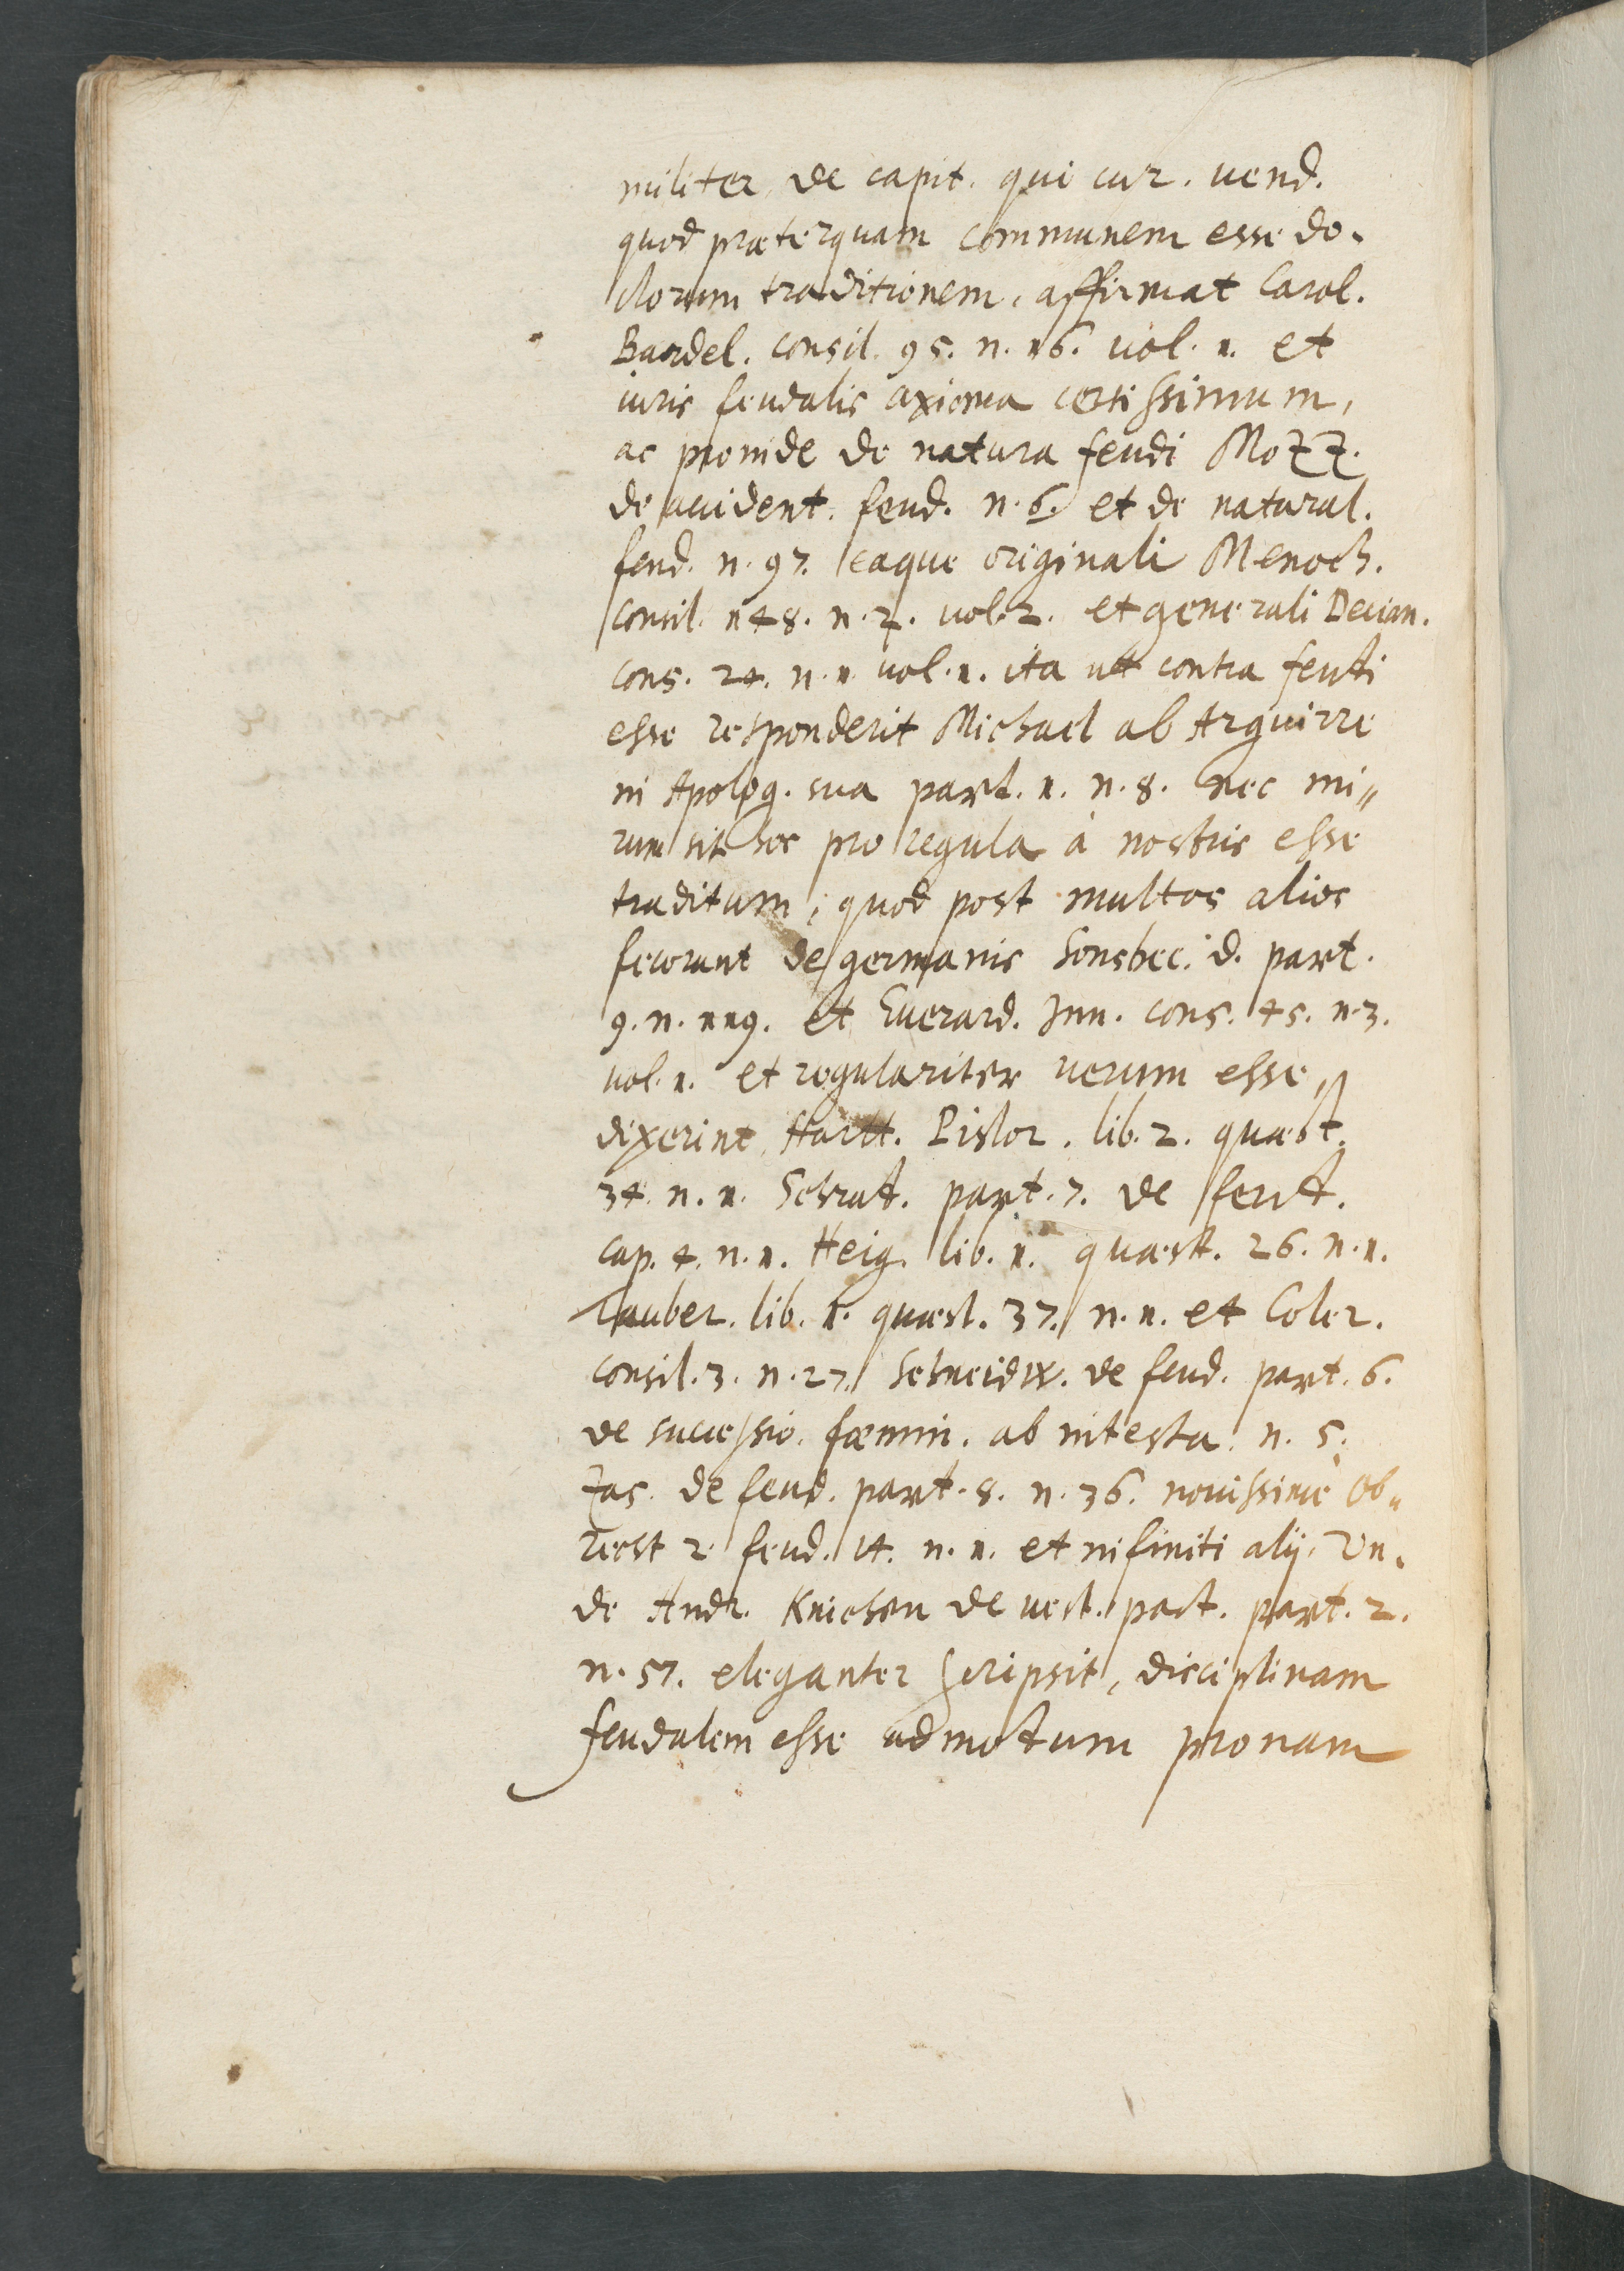 militer de capit. qui cur. vend.
quod præterquam communem esse do-
ctorum traditionem, affirmat Carol.
Bardel. consil. 95. n. 16. vol. 1. et
iuris feudalis axioma certissimum,
ac proinde de natura feudi Mozz.
de accident. feud. n. 6. et de natural.
feud. n. 97. eaque originali Menoch.
consil. 148. n. 7. vol. 2. et generali Decian.
cons. 24. n. 1. vol. 1. ita ut contra feudi
esse responderit Michael ab Arguirre
in Apolog. sua part. 1. n. 8. nec mi„
rum sit hoc pro regula à nostris esse
traditum, quod post multos alios
fecerunt de germanis Sonsbec. d. part.
9. n. 119. et Everard. Jun. cons. 45. n. 3.
vol. 1. et regulariter verum esse
dixerint Hartt. Pistor. lib. 2. quæst.
34. n. 1. Schrat. part. 7. de feud.
cap. 4. n. 1. Heig. lib. 1. quæst. 26. n. 1.
Tauber. lib. 1. quæst. 37. n. 1. et Coler.
consil. 3. n. 27. Schneidw. de feud. part. 6.
de successio. fœmin. ab intesta. n. 5.
Zas. de feud. part. 8. n. 36. novissimè Ob„
recst 2 feud. 14. n. 1. et infiniti alij. Un-
de Andr. Knichen de vest. pact. part. 2.
n. 57. eleganter scripsit, disciplinam
feudalem esse admotum pronam